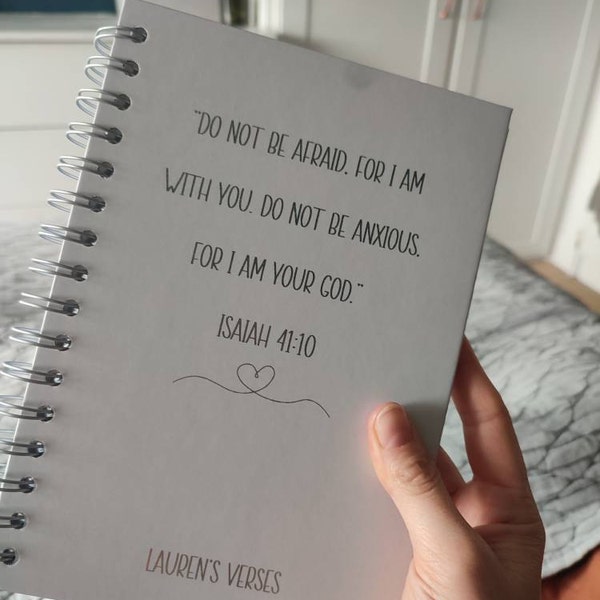 "DO NOT BE AFRAID, FOR I AM
WITH YOU. DO NOT BE ANXIOUS,
FOR I AM YOUR GOD."
ISAIAH 41:10
LAUREN'S VERSES